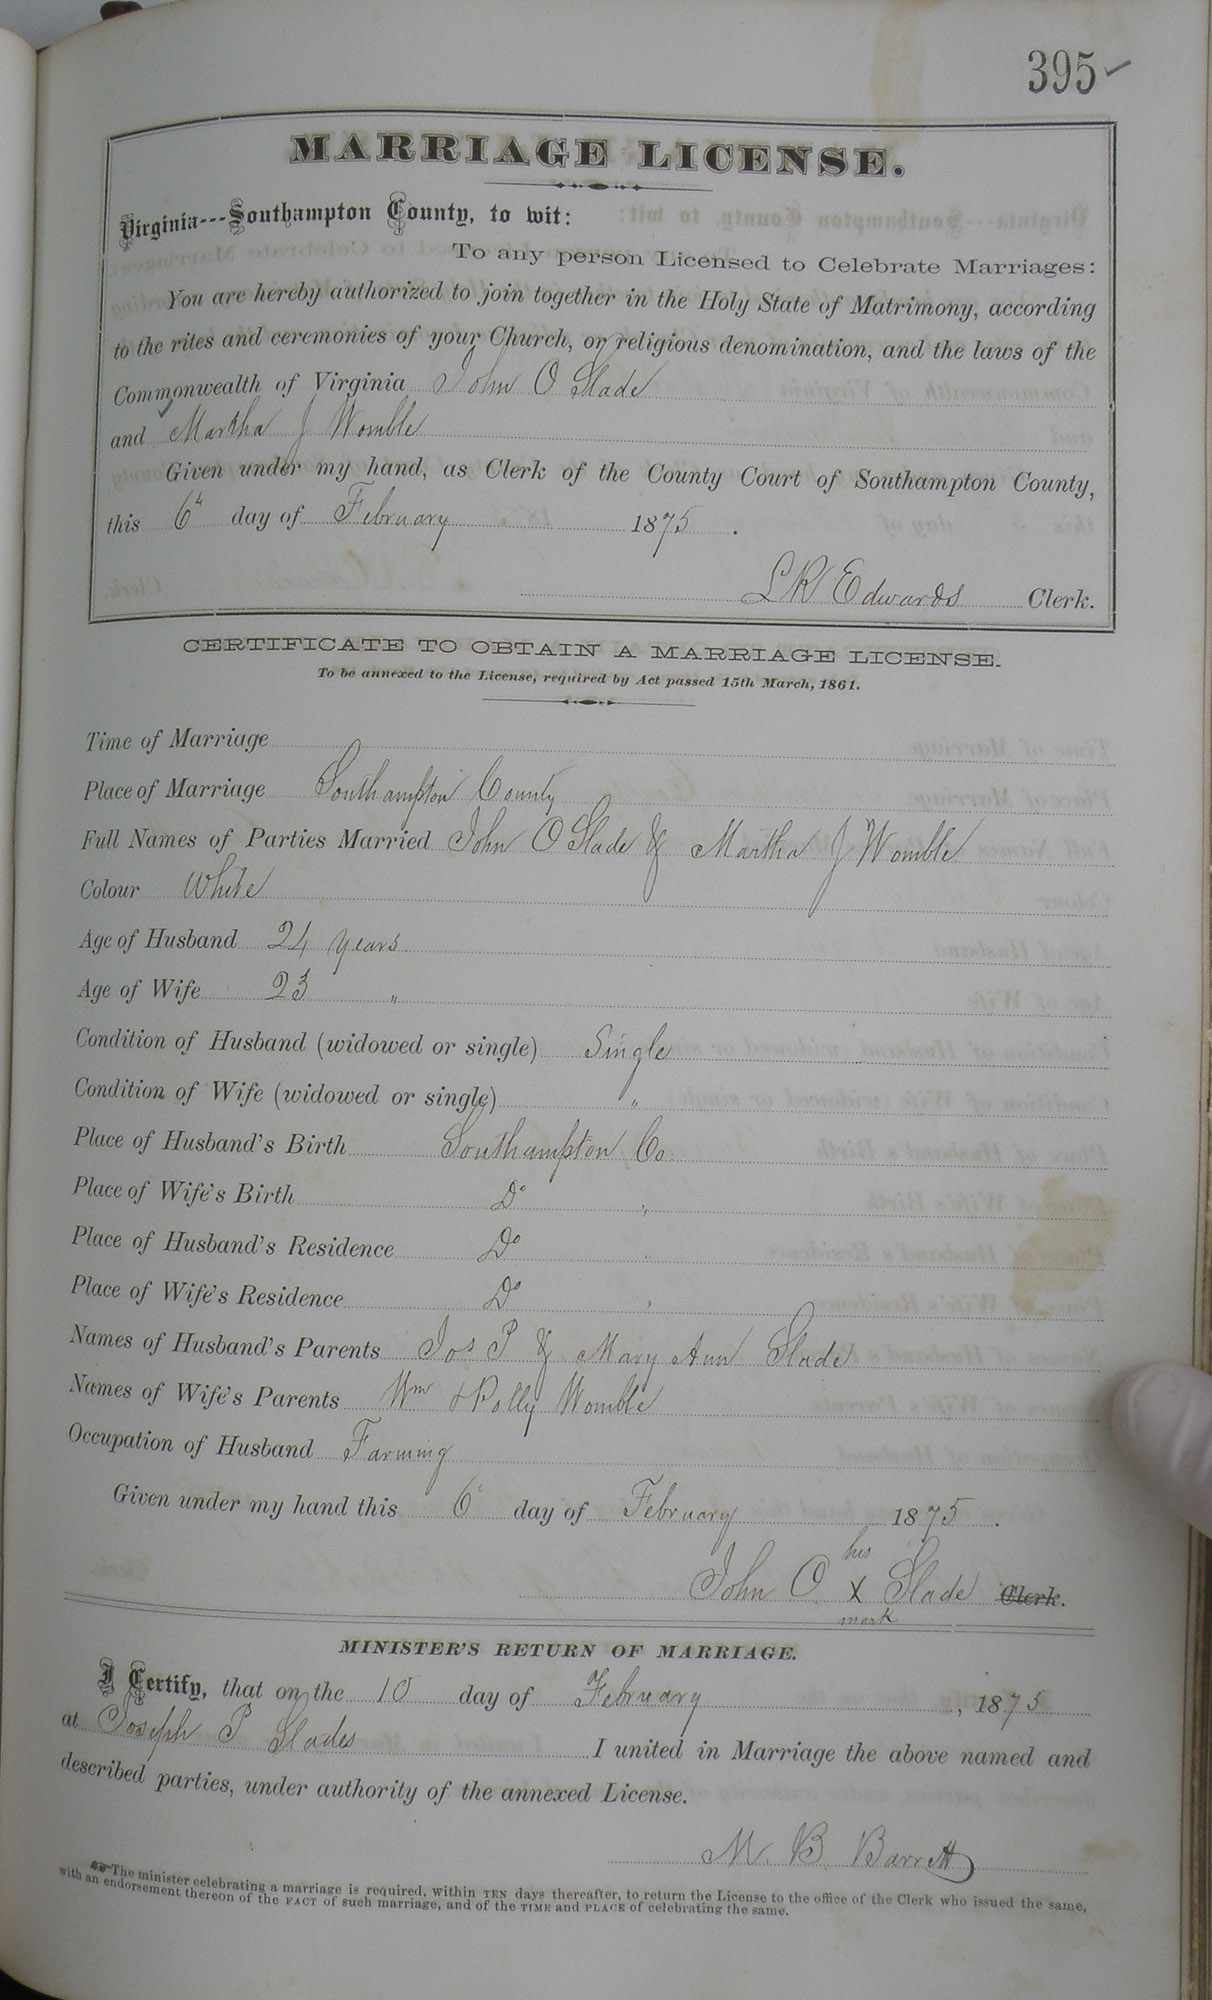 395 ✓
MARRIAGE LICENSE.
Virginia---Southampton County, to wit:
To any person Licensed to Celebrate Marriages:
You are hereby authorized to join together in the Holy State of Matrimony, according
to the rites and ceremonies of your Church, or religious denomination, and the laws of the
Commonwealth of Virginia John O Slade
and Martha J Womble
Given under my hand, as Clerk of the County Court of Southampton County,
this 6" day of February 1875.
L R Edwards Clerk.
CERTIFICATE TO OBTAIN A MARRIAGE LICENSE.
To be annexed to the License, required by Act passed 15th March, 1861.
Time of Marriage
Place of Marriage Southampton County
Full Names of Parties Married John O Slade & Martha J Womble
Colour White
Age of Husband 24 years
Age of Wife 23 "
Condition of Husband (widowed or single) Single
Condition of Wife (widowed or single) "
Place of Husband's Birth Southampton Co
Place of Wife's Birth Do "
Place of Husband's Residence Do "
Place of Wife's Residence Do "
Names of Husband's Parents Jos P & Mary Ann Slade
Names of Wife's Parents Wm & Polly Womble
Occupation of Husband Farming
Given under my hand this 6" day of February 1875.
his
John O X Slade Clerk.
mark
MINISTER'S RETURN OF MARRIAGE.
I Certify, that on the 10 day of February, 1875
at Joseph P Slades I united in Marriage the above named and
described parties, under authority of the annexed License.
M. B Barrett
☞ The minister celebrating a marriage is required, within TEN days thereafter, to return the License to the office of the Clerk who issued the same,
with an endorsement thereon of the FACT of such marriage, and of the TIME and PLACE of celebrating the same.